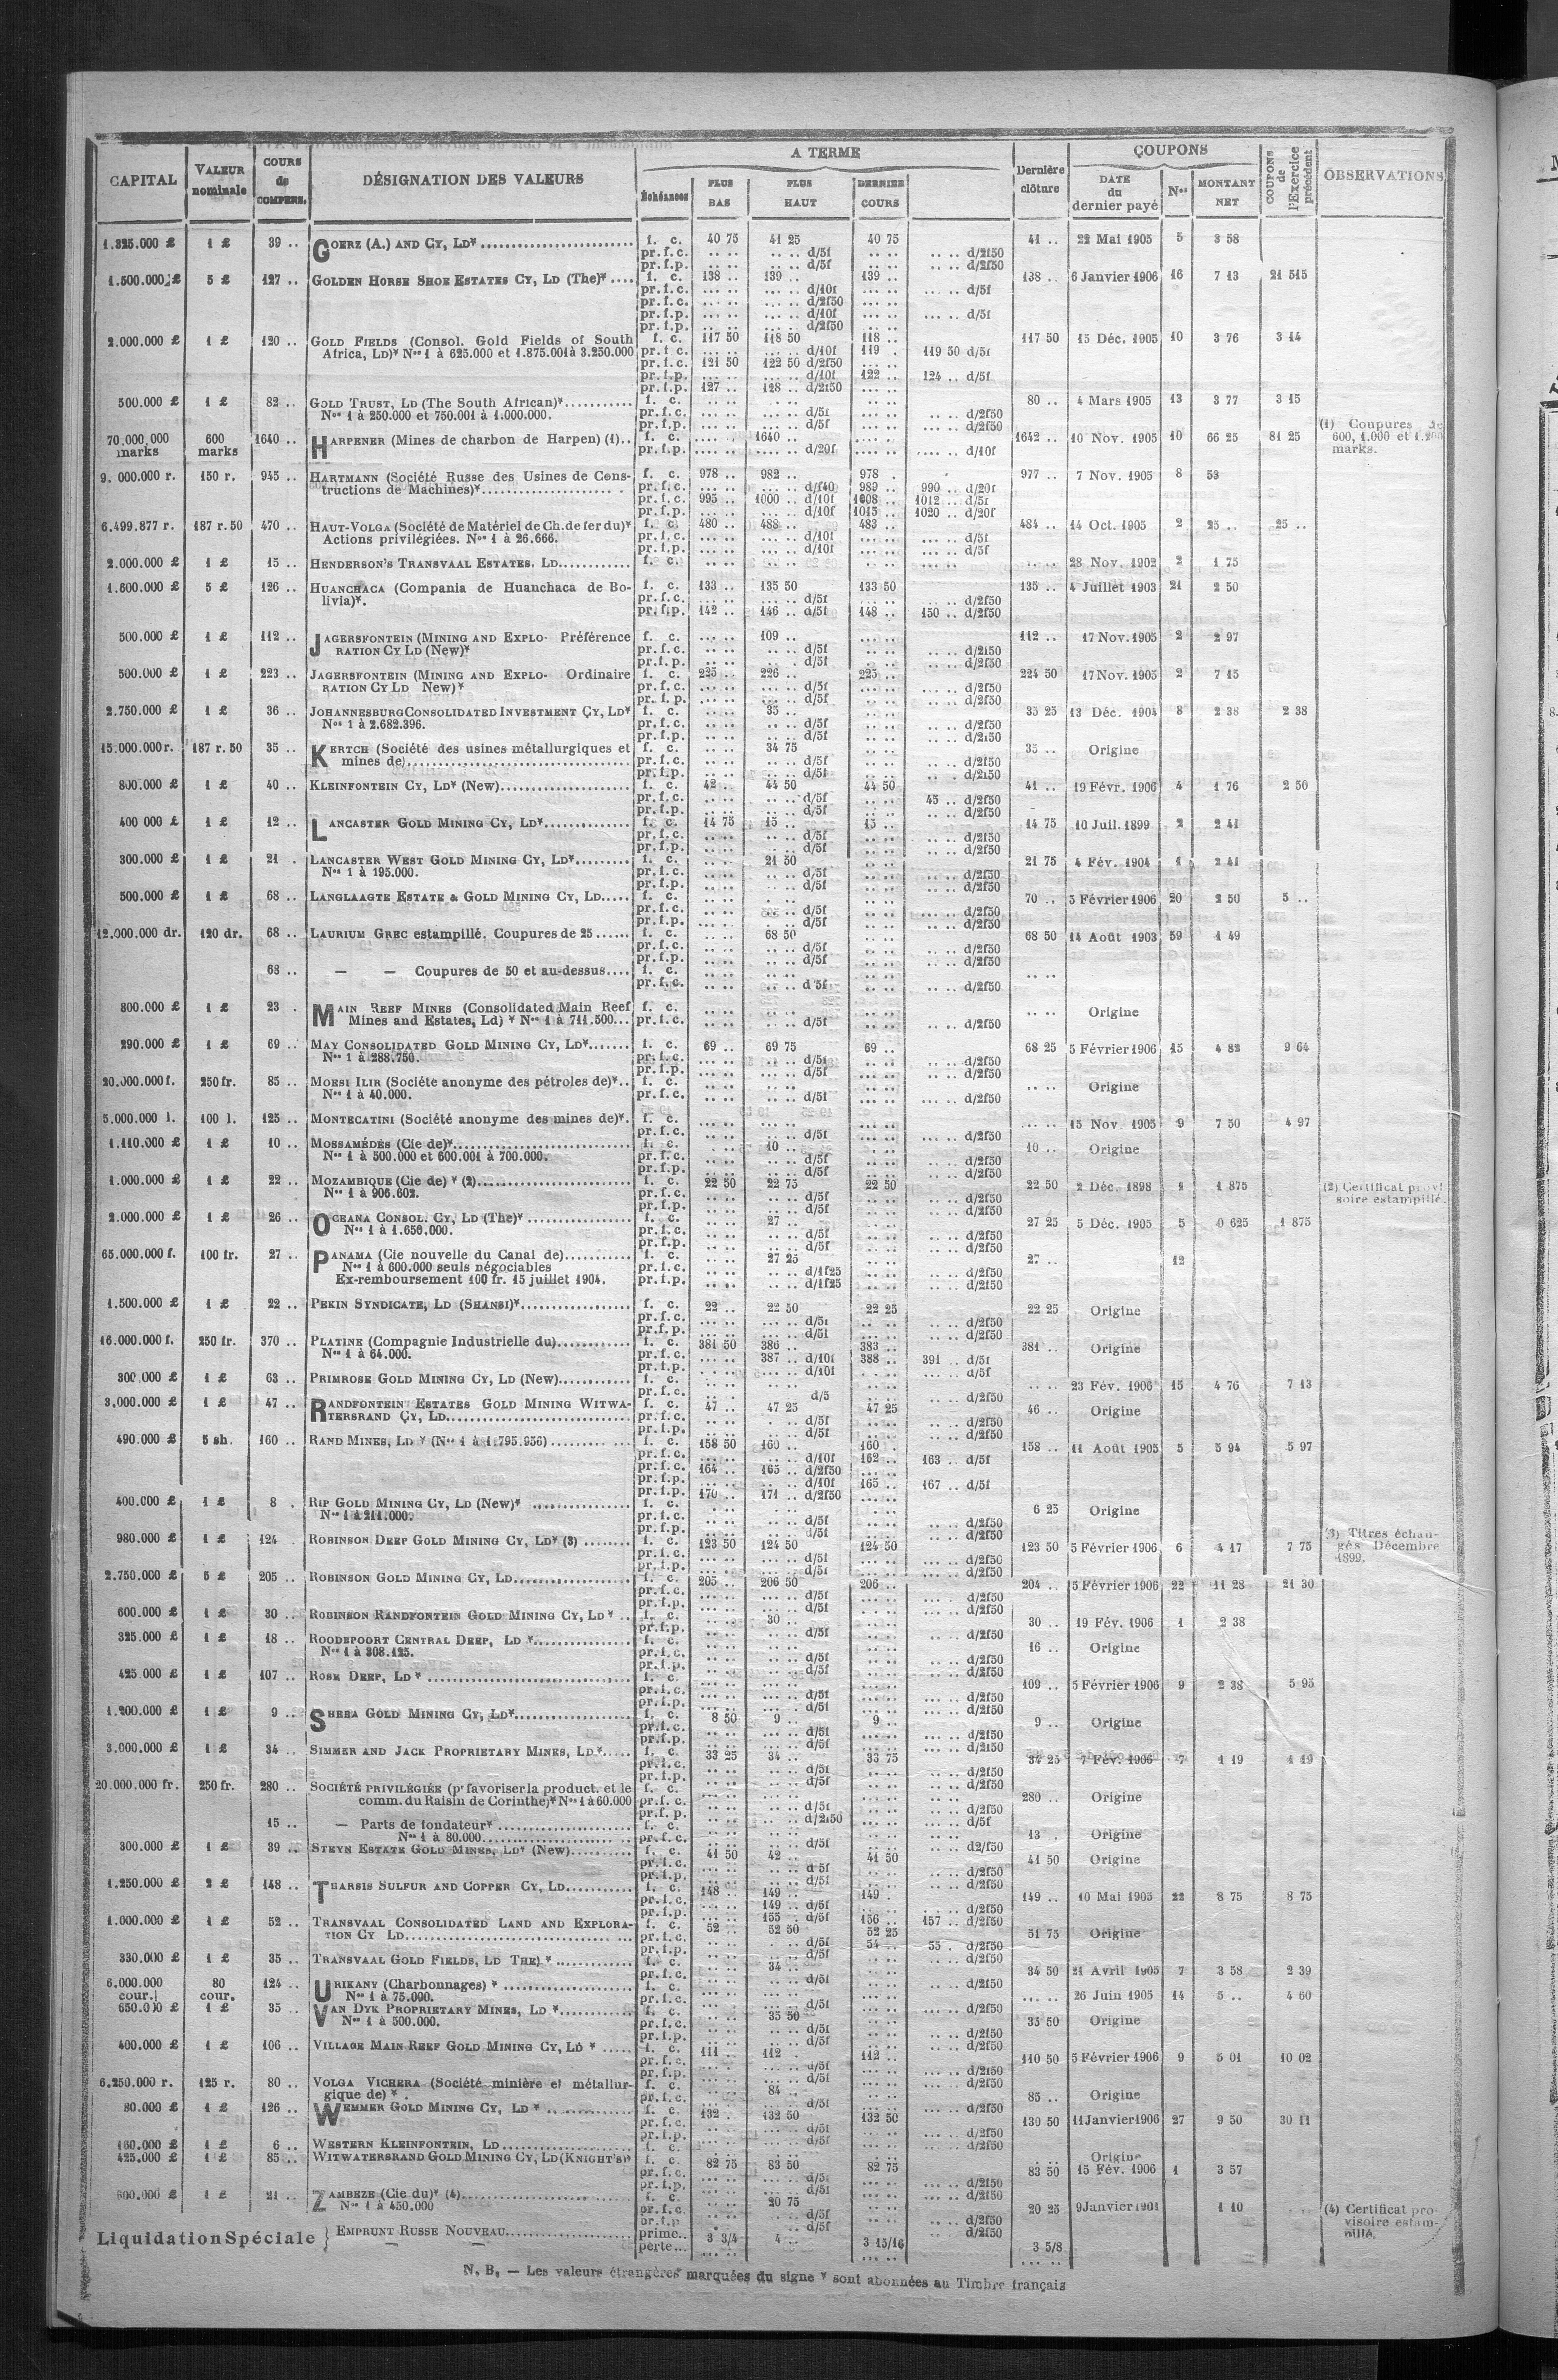 CAPITAL
VALEUR nominale
COURS de COMPENS.
DÉSIGNATION DES VALEURS
A TERME
Échéances
PLUS BAS
PLUS HAUT
DERNIER COURS
Dernière clôture
COUPONS
DATE du dernier payé
Nos
MONTANT NET
COUPONS de l'Exercice précédent
OBSERVATIONS
1.325.000 £ 1 £ 39 .. GOERZ (A.) AND CY, LD* f. c. 40 75 41 25 40 75 41 .. 22 Mai 1905 5 3 58
pr. f. c. .. .. .. .. d/5f .. .. .. .. d/2f50
pr. f. p. .. .. .. .. d/5f .. .. .. .. d/2f50
1.500.000 £ 5 £ 127 .. GOLDEN HORSE SHOE ESTATES CY, LD (The)* f. c. 138 .. 139 .. 139 .. 138 .. 6 Janvier 1906 16 7 13 21 515
pr. f. c. d/10f d/5f
pr. f. c. d/2f50
pr. f. p. d/10f d/5f
pr. f. p. d/2f50
2.000.000 £ 1 £ 120 .. GOLD FIELDS (Consol. Gold Fields of South f. c. 117 50 118 50 118 .. 117 50 15 Déc. 1905 10 3 76 3 14
Africa, LD)* Nos 1 à 625.000 et 1.875.001 à 3.250.000 pr. f. c. d/10f 119 . 119 50 d/5f
pr. f. c. 121 50 122 50 d/2f50
pr. f. p. d/10f 122 .. 124 .. d/5f
pr. f. p. 127 .. 128 .. d/2f50
500.000 £ 1 £ 82 .. GOLD TRUST, LD (The South African)* f. c. 80 .. 4 Mars 1905 13 3 77 3 15
Nos 1 à 250.000 et 750.001 à 1.000.000. pr. f. c. d/5f d/2f50
pr. f. p. d/5f d/2f50
70.000.000 marks 600 marks 1640 .. HARPENER (Mines de charbon de Harpen) (1) f. c. 1640 .. 1642 .. 10 Nov. 1905 10 66 25 81 25
pr. f. p. d/20f d/10f
(1) Coupures de 600, 1.000 et 1.200 marks.
9. 000.000 r. 150 r. 945 .. HARTMANN (Société Russe des Usines de Cons- f. c. 978 .. 982 .. 978 . 977 .. 7 Nov. 1905 8 53
tructions de Machines)* pr. f. c. d/f40 989 .. 990 .. d/20f
pr. f. c. 995 .. 1000 .. d/10f 1008 .. 1012 .. d/5f
pr. f. p. d/10f 1015 .. 1020 .. d/20f
6.499.877 r. 187 r. 50 470 .. HAUT-VOLGA (Société de Matériel de Ch. de fer du)* f. c. 480 .. 488 .. 483 .. 484 .. 14 Oct. 1905 2 25 .. 25 ..
Actions privilégiées. Nos 1 à 26.666. pr. f. c. d/10f d/5f
pr. f. p. d/10f d/5f
2.000.000 £ 1 £ 15 .. HENDERSON'S TRANSVAAL ESTATES, LD f. c. 28 Nov. 1902 2 1 75
1.600.000 £ 5 £ 126 .. HUANCHACA (Compania de Huanchaca de Bo- f. c. 133 .. 135 50 133 50 135 .. 4 Juillet 1903 21 2 50
livia)*. pr. f. c. d/5f d/2f50
pr. f. p. 142 .. 146 .. d/5f 148 .. 150 .. d/2f50
500.000 £ 1 £ 112 .. JAGERSFONTEIN (MINING AND EXPLO- Préférence f. c. 109 .. 112 .. 17 Nov. 1905 2 2 97
RATION CY LD (New)* pr. f. c. d/5f d/2f50
pr. f. p. d/5f d/2f50
500.000 £ 1 £ 223 .. JAGERSFONTEIN (MINING AND EXPLO- Ordinaire f. c. 225 .. 226 .. 225 .. 224 50 17 Nov. 1905 2 7 15
RATION CY LD New)* pr. f. c. d/5f d/2f50
pr. f. p. d/5f d/2f50
2.750.000 £ 1 £ 36 .. JOHANNESBURG CONSOLIDATED INVESTMENT CY, LD* f. c. 35 .. 35 25 13 Déc. 1904 8 2 38 2 38
Nos 1 à 2.682.396. pr. f. c. d/5f d/2f50
pr. f. p. d/5f d/2f50
15.000.000 r. 187 r. 50 35 .. KERTCH (Société des usines métallurgiques et f. c. 34 75 35 .. Origine
mines de) pr. f. c. d/5f d/2f50
pr. f. p. d/5f d/2f50
800.000 £ 1 £ 40 .. KLEINFONTEIN CY, LD* (New) f. c. 42 .. 44 50 44 50 41 .. 19 Févr. 1906 4 1 76 2 50
pr. f. c. d/5f 45 .. d/2f50
pr. f. p. d/5f d/2f50
400 000 £ 1 £ 12 .. LANCASTER GOLD MINING CY, LD* f. c. 14 75 15 .. 15 .. 14 75 10 Juil. 1899 2 2 41
pr. f. c. d/5f d/2f50
pr. f. p. d/5f d/2f50
300.000 £ 1 £ 21 . LANCASTER WEST GOLD MINING CY, LD* f. c. 21 50 21 75 4 Fév. 1904 1 2 41
Nos 1 à 195.000. pr. f. c. d/5f d/2f50
pr. f. p. d/5f d/2f50
500.000 £ 1 £ 68 .. LANGLAAGTE ESTATE & GOLD MINING CY, LD f. c. 70 .. 5 Février 1906 20 2 50 5 ..
pr. f. c. d/5f d/2f50
pr. f. p. d/5f d/2f50
12.000.000 dr. 120 dr. 68 .. LAURIUM GREC estampillé. Coupures de 25 f. c. 68 50 68 50 14 Août 1903 59 1 49
pr. f. c. d/5f d/2f50
pr. f. p. d/5f d/2f50
68 .. — — Coupures de 50 et au-dessus f. c.
pr. f. c. d 5f d/2f50
800.000 £ 1 £ 23 . MAIN REEF MINES (Consolidated Main Reef f. c. Origine
Mines and Estates, Ld) * Nos 1 à 711.500 pr. f. c. d/5f d/2f50
290.000 £ 1 £ 69 .. MAY CONSOLIDATED GOLD MINING CY, LD* f. c. 69 .. 69 75 69 .. 68 25 5 Février 1906 15 4 82 9 64
Nos 1 à 288.750. pr. f. c. d/5f d/2f50
pr. f. p. d/5f d/2f50
20.000.000 f. 250 fr. 85 .. MOESI ILIR (Sociéte anonyme des pétroles de)* f. c. Origine
Nos 1 à 40.000. pr. f. c. d/5f d/2f50
5.000.000 l. 100 l. 125 .. MONTECATINI (Société anonyme des mines de)* f. c. 15 Nov. 1905 9 7 50 4 97
pr. f. c. d/5f d/2f50
1.110.000 £ 1 £ 10 .. MOSSAMÉDÈS (Cie de)* f. c. 10 .. 10 .. Origine
Nos 1 à 500.000 et 600.001 à 700.000. pr. f. c. d/5f d/2f50
pr. f. p. d/5f d/2f50
1.000.000 £ 1 £ 22 .. MOZAMBIQUE (Cie de) * (2) f. c. 22 50 22 75 22 50 22 50 2 Déc. 1898 1 1 875
Nos 1 à 906.602. pr. f. c. d/5f d/2f50
pr. f. p. d/5f d/2f50
(2) Certificat provisoire estampillé.
2.000.000 £ 1 £ 26 .. OCEANA CONSOL. CY, LD (The)* f. c. 27 .. 27 25 5 Déc. 1905 5 0 625 1 875
Nos 1 à 1.656.000. pr. f. c. d/5f d/2f50
pr. f. p. d/5f d/2f50
65.000.000 f. 100 fr. 27 .. PANAMA (Cie nouvelle du Canal de) f. c. 27 25 27 .. 12
Nos 1 à 600.000 seuls négociables pr. f. c. d/1f25 d/2f50
Ex-remboursement 100 fr. 15 juillet 1904. pr. f. p. d/1f25 d/2f50
1.500.000 £ 1 £ 22 .. PEKIN SYNDICATE, LD (SHANSI)* f. c. 22 .. 22 50 22 25 22 25 Origine
pr. f. c. d/5f d/2f50
pr. f. p. d/5f d/2f50
16.000.000 f. 250 fr. 370 .. PLATINE (Compagnie Industrielle du) f. c. 381 50 386 .. 383 .. 381 .. Origine
Nos 1 à 64.000. pr. f. c. 387 .. d/10f 388 .. 391 .. d/5f
pr. f. p. d/10f d/5f
300.000 £ 1 £ 63 .. PRIMROSE GOLD MINING CY, LD (New) f. c. 23 Fév. 1906 15 4 76 7 13
pr. f. c. d/5 d/2f50
3.000.000 £ 1 £ 47 .. RANDFONTEIN ESTATES GOLD MINING WITWA- f. c. 47 .. 47 25 47 25 46 .. Origine
TERSRAND CY, LD pr. f. c. d/5f d/2f50
pr. f. p. d/5f d/2f50
490.000 £ 5 sh. 160 .. RAND MINES, LD * (Nos 1 à 1.795.956) f. c. 158 50 160 .. 160 . 158 .. 11 Août 1905 5 5 94 5 97
pr. f. c. d/10f 162 .. 163 .. d/5f
pr. f. c. 164 .. 165 .. d/2f50
pr. f. p. d/10f 165 .. 167 .. d/5f
pr. f. p. 170 .. 171 .. d/2f50
400.000 £ 1 £ 8 . RIP GOLD MINING CY, LD (New)* f. c. 6 25 Origine
Nos 1 à 211.000. pr. f. c. d/5f d/2f50
pr. f. p. d/5f d/2f50
980.000 £ 1 £ 124 ROBINSON DEEP GOLD MINING CY, LD* (3) f. c. 123 50 124 50 124 50 123 50 5 Février 1906 6 4 17 7 75
pr. f. c. d/5f d/2f50
pr. f. p. d/5f d/2f50
(3) Titres échangés Décembre 1899.
2.750.000 £ 5 £ 205 .. ROBINSON GOLD MINING CY, LD f. c. 205 .. 206 50 206 .. 204 .. 5 Février 1906 22 11 28 21 30
pr. f. c. d/5f d/2f50
pr. f. p. d/5f d/2f50
600.000 £ 1 £ 30 .. ROBINSON RANDFONTEIN GOLD MINING CY, LD * f. c. 30 .. 30 .. 19 Fév. 1906 1 2 38
pr. f. p. d/5f d/2f50
325.000 £ 1 £ 18 .. ROODEPOORT CENTRAL DEEP, LD * f. c. 16 .. Origine
Nos 1 à 308.125. pr. f. c. d/5f d/2f50
pr. f. p. d/5f d/2f50
425.000 £ 1 £ 107 .. ROSE DEEP, LD * f. c. 109 .. 5 Février 1906 9 2 38 5 95
pr. f. c. d/5f d/2f50
pr. f. p. d/5f d/2f50
1.200.000 £ 1 £ 9 .. SHEBA GOLD MINING CY, LD* f. c. 8 50 9 .. 9 .. 9 .. Origine
pr. f. c. d/5f d/2f50
pr. f. p. d/5f d/2f50
3.000.000 £ 1 £ 34 .. SIMMER AND JACK PROPRIETARY MINES, LD * f. c. 33 25 34 .. 33 75 34 25 7 Fév. 1906 7 1 19 1 19
pr. f. c. d/5f d/2f50
pr. f. p. d/5f d/2f50
20.000.000 fr. 250 fr. 280 .. SOCIÉTÉ PRIVILÉGIÉE (pr favoriser la product. et le f. c. 280 .. Origine
comm. du Raisin de Corinthe)* Nos 1 à 60.000 pr. f. c. d/5f d/2f50
pr. f. p. d/2f50 d/5f
15 .. — Parts de fondateur* f. c. 13 . Origine
Nos 1 à 80.000 pr. f. c. d/5f d2/f50
300.000 £ 1 £ 39 .. STEYN ESTATE GOLD MINES, LD* (New) f. c. 41 50 42 .. 41 50 41 50 Origine
pr. f. c. d 5f d/2f50
pr. f. p. d/5f d/2f50
1.250.000 £ 2 £ 148 .. THARSIS SULFUR AND COPPER CY, LD f. c. 148 .. 149 .. 149 . 149 .. 10 Mai 1905 22 8 75 8 75
pr. f. c. 149 .. d/5f d/2f50
pr. f. p. 155 . d/5f 156 .. 157 .. d/2f50
1.000.000 £ 1 £ 52 .. TRANSVAAL CONSOLIDATED LAND AND EXPLORA- f. c. 52 .. 52 50 52 25 51 75 Origine
TION CY LD pr. f. c. d/5f 54 .. 55 . d/2f50
pr. f. p. d/5f d/2f50
330.000 £ 1 £ 35 .. TRANSVAAL GOLD FIELDS, LD THE) * f. c. 34 .. 34 50 21 Avril 1905 7 3 58 2 39
pr. f. c. d/5f d/2f50
6.000.000 cour. 80 cour. 124 .. URIKANY (Charbonnages) * f. c. 26 Juin 1905 14 5 .. 4 60
Nos 1 à 75.000. pr. f. c. d/5f d/2f50
650.000 £ 1 £ 35 .. VAN DYK PROPRIETARY MINES, LD * f. c. 35 50 35 50 Origine
Nos 1 à 500.000. pr. f. c. d/5f d/2f50
pr. f. p. d/5f d/2f50
400.000 £ 1 £ 106 .. VILLAGE MAIN REEF GOLD MINING CY, LD * f. c. 111 .. 112 . 112 .. 110 50 5 Février 1906 9 5 01 10 02
pr. f. c. d/5f d/2f50
pr. f. p. d/5f d/2f50
6.250.000 r. 125 r. 80 .. VOLGA VICHERA (Société minière et métallur- f. c. 84 .. 85 .. Origine
gique de) * . pr. f. c. d/5f d/2f50
80.000 £ 1 £ 126 .. WEMMER GOLD MINING CY, LD * f. c. 132 . 132 50 132 50 130 50 11 Janvier 1906 27 9 50 30 11
pr. f. c. d/5f d/2f50
pr. f. p. d/5f d/2f50
160.000 £ 1 £ 6 .. WESTERN KLEINFONTEIN, LD f. c. Origine
425.000 £ 1 £ 85 .. WITWATERSRAND GOLD MINING CY, LD (KNIGHT'S) f. c. 82 75 83 50 82 75 83 50 15 Fév. 1906 1 3 57
pr. f. c. d/5f d/2f50
pr. f. p. d/5f d/2f50
600.000 £ 1 £ 21 .. ZAMBEZE (Cie du)* (4) f. c. 20 75 20 25 9 Janvier 1901 1 10
Nos 1 à 450.000 pr. f. c. d/5f d/2f50
pr. f. p. d/5f d/2f50
(4) Certificat provisoire estampillé.
Liquidation Spéciale } EMPRUNT RUSSE NOUVEAU prime.. 3 3/4 4 .. 3 15/16 3 5/8
— — perte...
N. B. — Les valeurs étrangères marquées du signe * sont abonnées au Timbre français